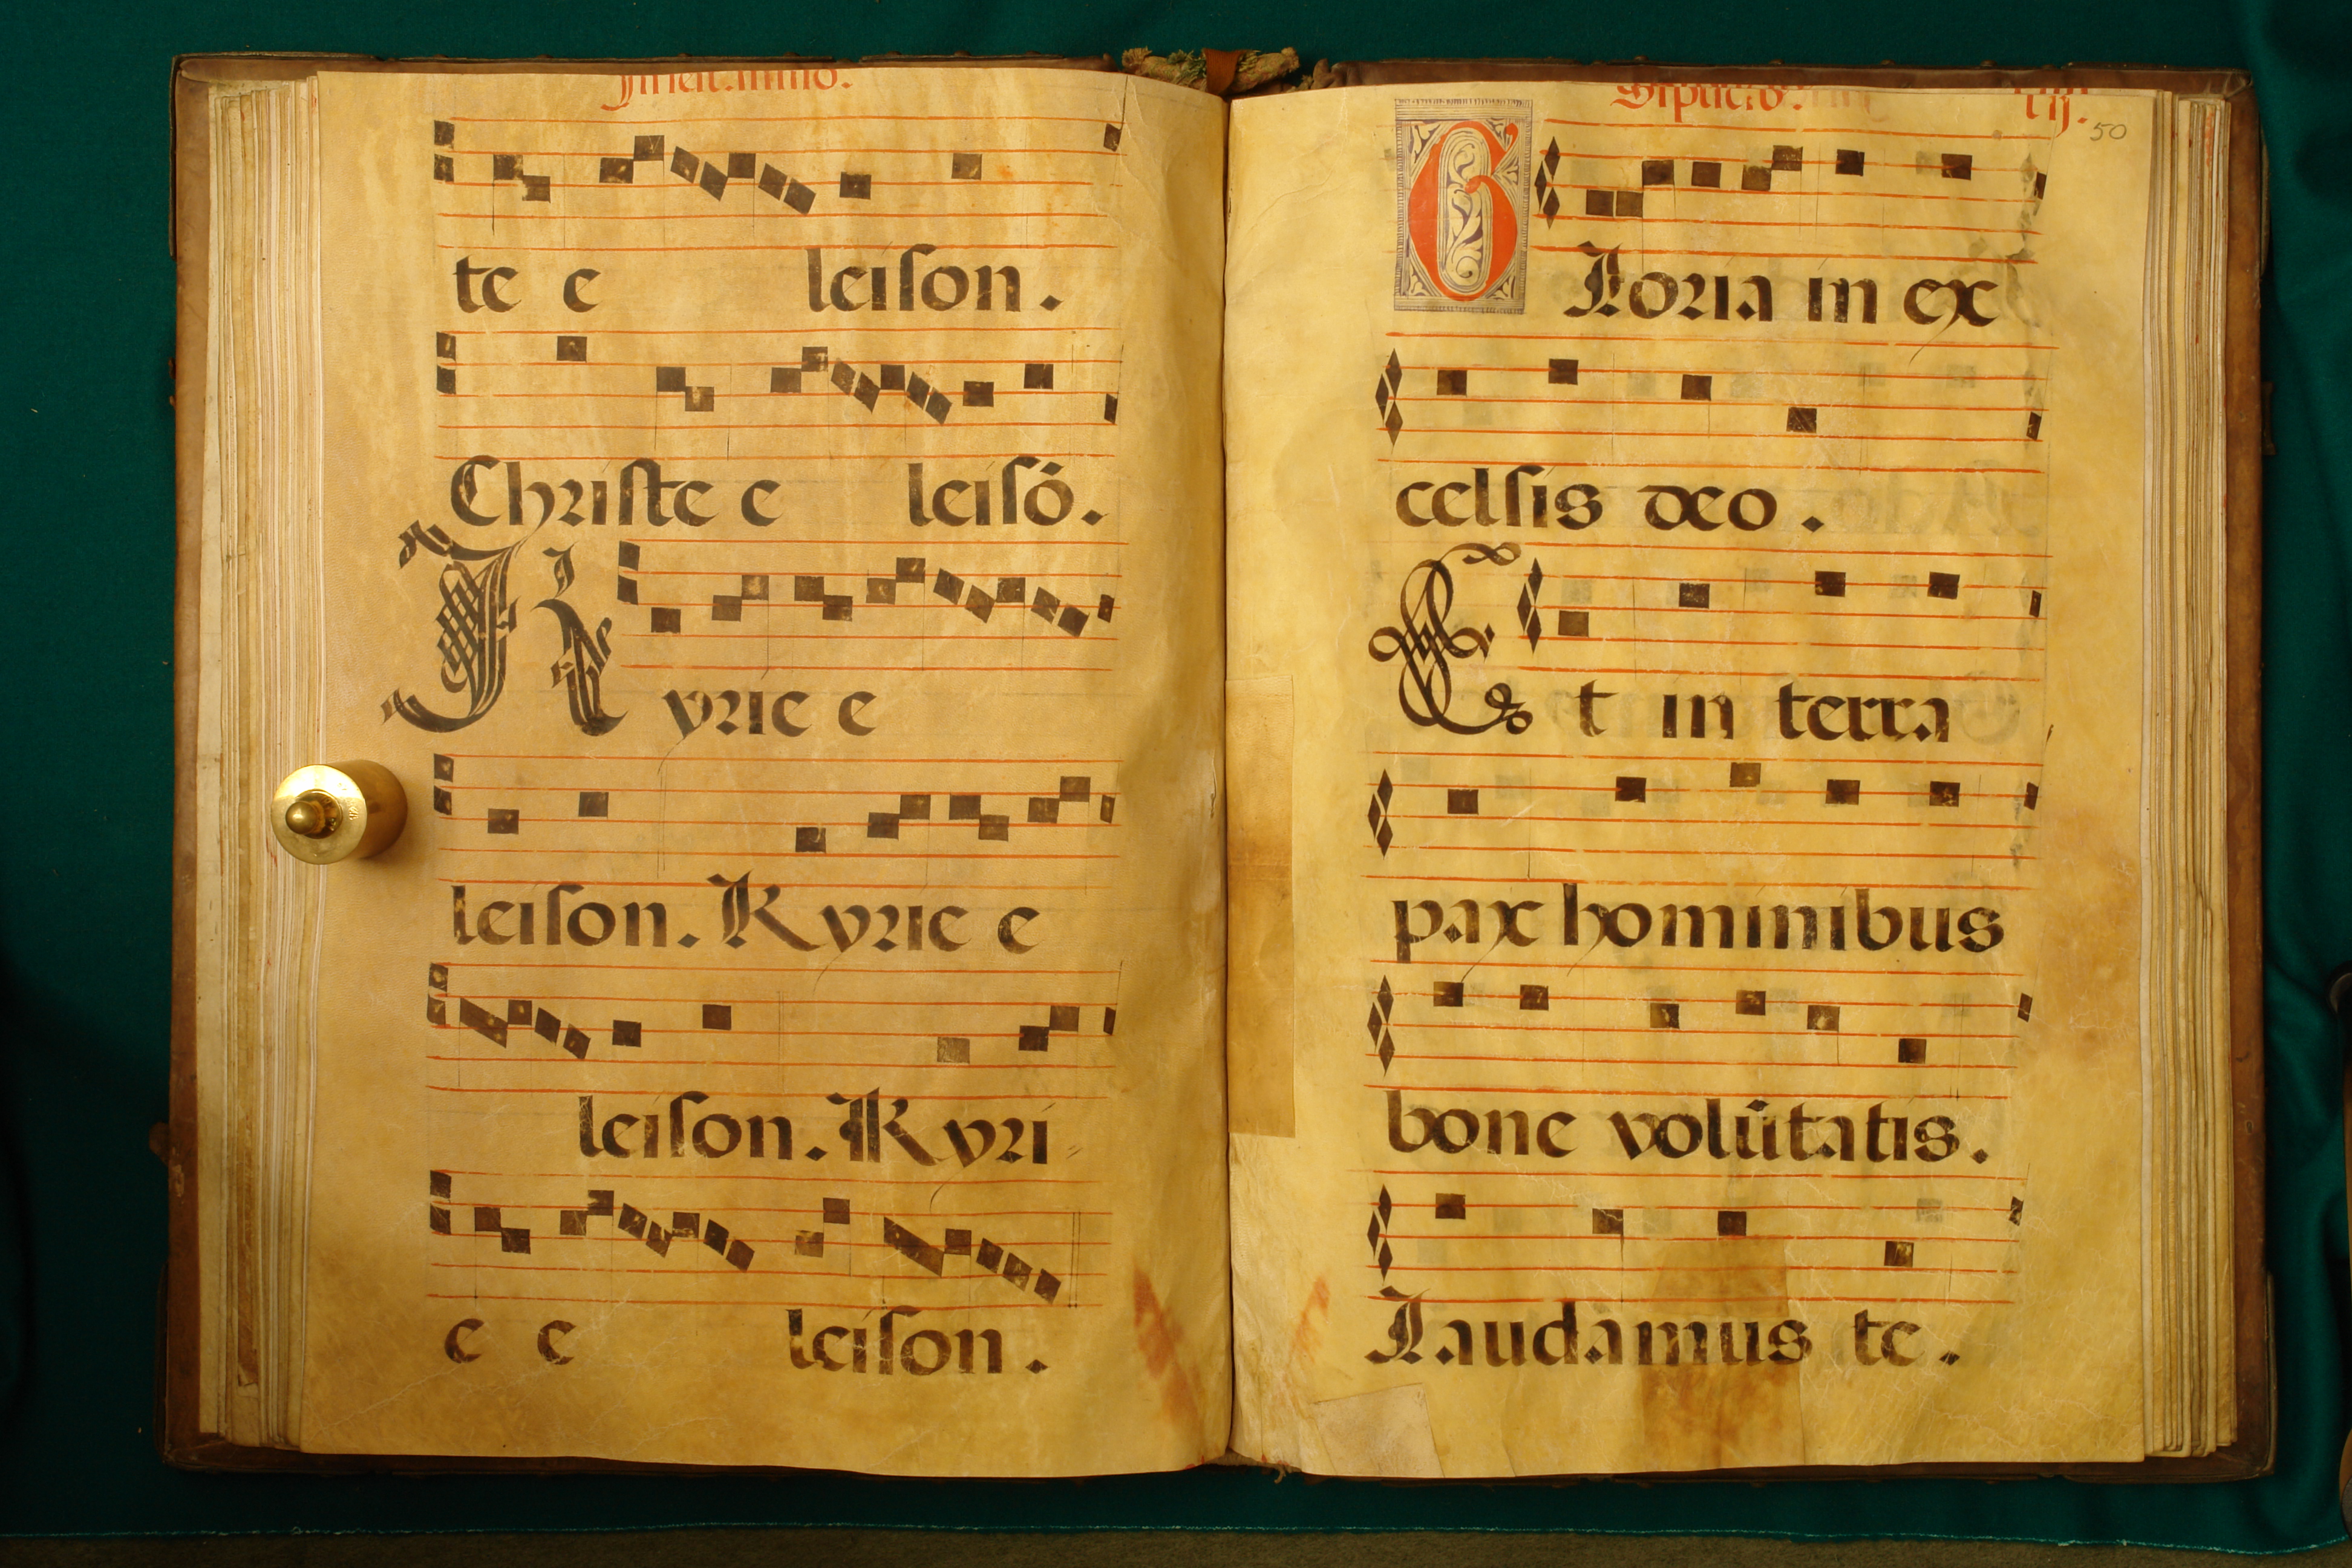 te e leiſon.
Chriſte e leiſō.
Kyrie e
leiſon. Kyrie e
leiſon. Kyri
e e leiſon.
50
Gloria in ex
celſis deo.
Et in terra
pax hominibus
bone volūtatis.
Laudamus te.